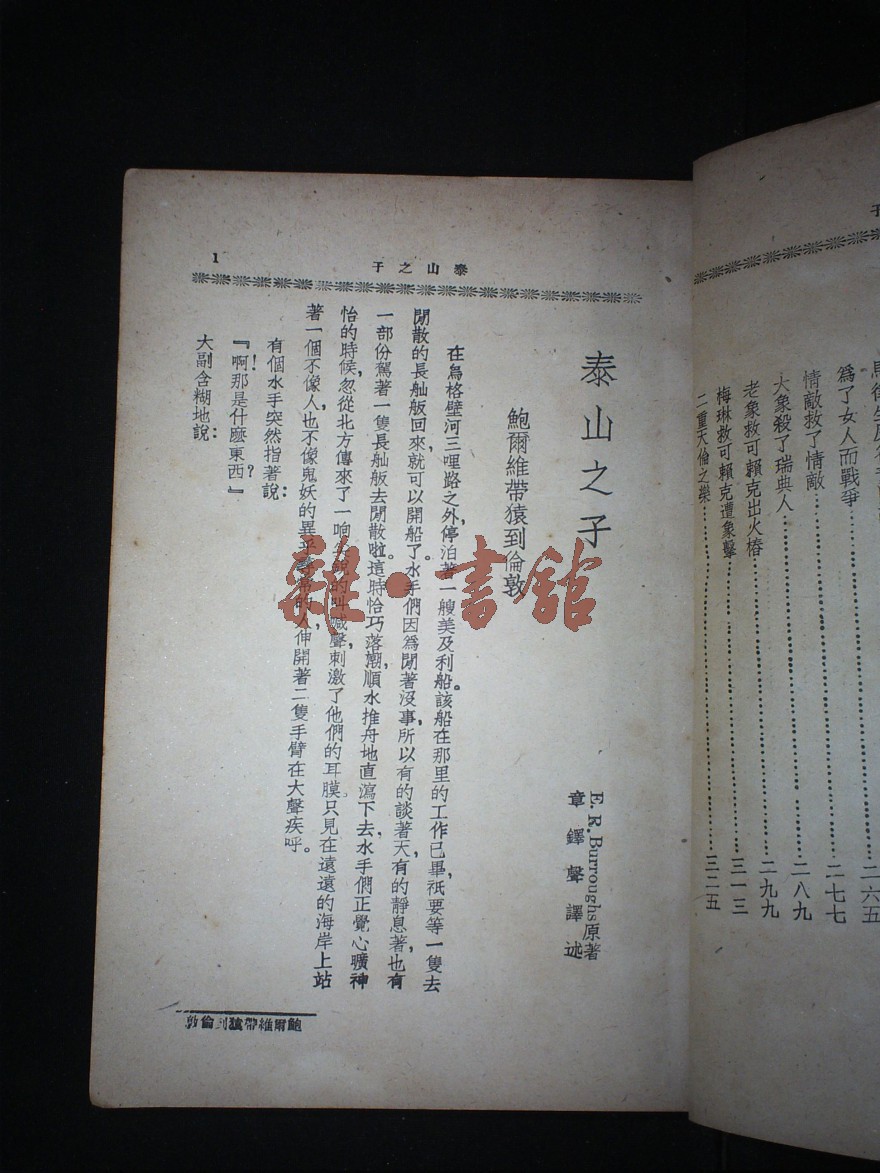 子
馬
爲了女人而戰爭
二六五
情敵救了情敵
二七七
大象殺了瑞典人
二八九
老象救可賴克出火樁
二九九
梅琳救可賴克遭象擊
三一三
二重天倫之樂
三二五
泰山之子
1
泰山之子
E. R. Burroughs原著
章鐸聲譯述
鮑爾維帶猿到倫敦
在烏格壁河三哩路之外，停泊著一艘美及利船。該船在那里的工作已畢，祇要等一隻去
閒散的長舢舨回來，就可以開船了。水手們因爲閒著沒事，所以有的談著天，有的靜息著，也有
一部份駕著一隻長舢舨去閒散啦。這時恰巧落潮，順水推舟地直瀉下去，水手們正覺心曠神
怡的時候，忽從北方傳來了一响
的叫喊聲，刺激了他們的耳膜，只見在遠遠的海岸上，站
著一個不像人也不像鬼妖的異乎
的人，伸開著二隻手臂在大聲疾呼。
有個水手突然指著說：
『啊！那是什麽東西？』
大副含糊地說：
鮑爾維帶猿到倫敦
雜·書舘